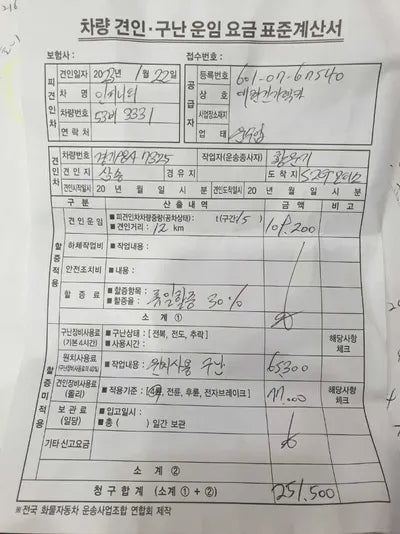 차량 견인·구난 운임 요금 표준계산서
보험사: 접수번호:
피견인차
견인일자 2023년 1월 22일
차 명
차량번호 9331
연락처
공급자
등록번호 601-07-67540
상 호
사업장소재지
업 태
견인차
차량번호 경기 7325 작업자(운송종사자)
출발지 경유지 도착지
견인시작일시 20 년 월 일 시 분 견인도착일시 20 년 월 일 시 분
구 분 산 출 내 역 금 액 비 고
할증적용
견인운임 ■ 피견인차차량중량(공차상태): t(구간/5)
■ 견인거리: 12 km 109.200
하체작업비 ■ 작업내용:
안전조치비 ■ 내용:
할 증 료 ■ 할증항목: 휴일할증
■ 할증율: 30%
소 계 ①
할증미적용
구난장비사용료 (기본 4시간) ■ 구난상태: [전복, 전도, 추락] 해당사항 체크
■ 사용시간:
원치사용료 (구난장비사용료의 40%) ■ 작업내용: 원치사용 구난 65300
견인장비사용료 (돌리) ■ 적용기준: [4륜, 전륜, 후륜, 전자브레이크] 77.000 해당사항 체크
보 관 료 (일당) ■ 입고일시:
■ 총 ( ) 일간 보관
기타 신고요금
소 계 ②
청 구 합 계 (소계 ① + ②) 251.500
※전국 화물자동차 운송사업조합 연합회 제작